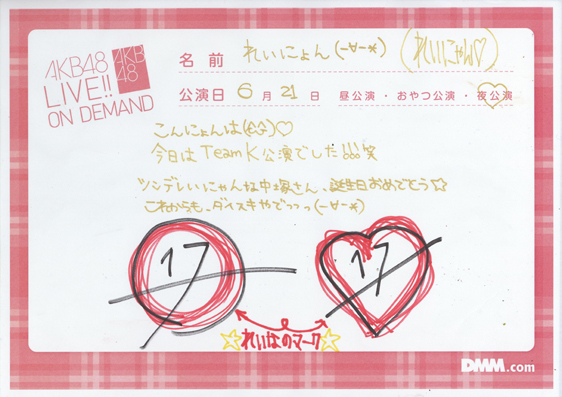 AKB48
LIVE!!
ON DEMAND
AKB
48
名前 れいにょん(-∀-*) (れいにゃん♡)
公演日 6月21日 昼公演・おやつ公演・夜公演
こんにょんは(^^)♡
今日はTeamK公演でした!!!笑
ツンデレいにゃんな中塚さん、誕生日おめでとう☆
これからも、ダイスキやでっっっ(-∀-*)
17
17
☆れいなのマーク☆
DMM.com